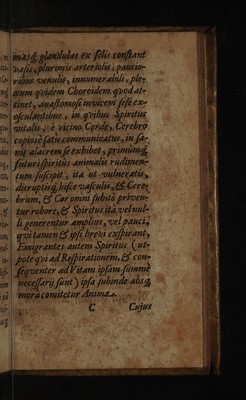 mas, & glandulas ex solis constant
vasis, plurimis arteriolis, paucio-
ribus venulis, innumerabili, ple-
xum quidem Choroidem quod at-
tinet, anastomosi invicem sese ex-
osculantibus, in quibus Spiritus
vitalis, è vicino Corde, Cerebro
copiosè satis communicatus, in fa-
mæ alacrem se exhibet, primumq;
futuri spiritûs animalis rudimen-
tum suscipit, ita ut vulneratis,
diruptisq; hisce vasculis, & Cere-
brum, & Cor omni subitò priven-
tur robore, & Spiritus ita vel nul-
li generentur amplius, vel pauci,
qui tamen & ipsi brevi exspirant,
Emigrantes autem Spiritus (ut-
pote qui ad Respirationem, & con-
seqventer ad Vitam ipsam summè
necessarij sunt) ipsa subinde absq;
mora comitetur Anima.
C Cujus